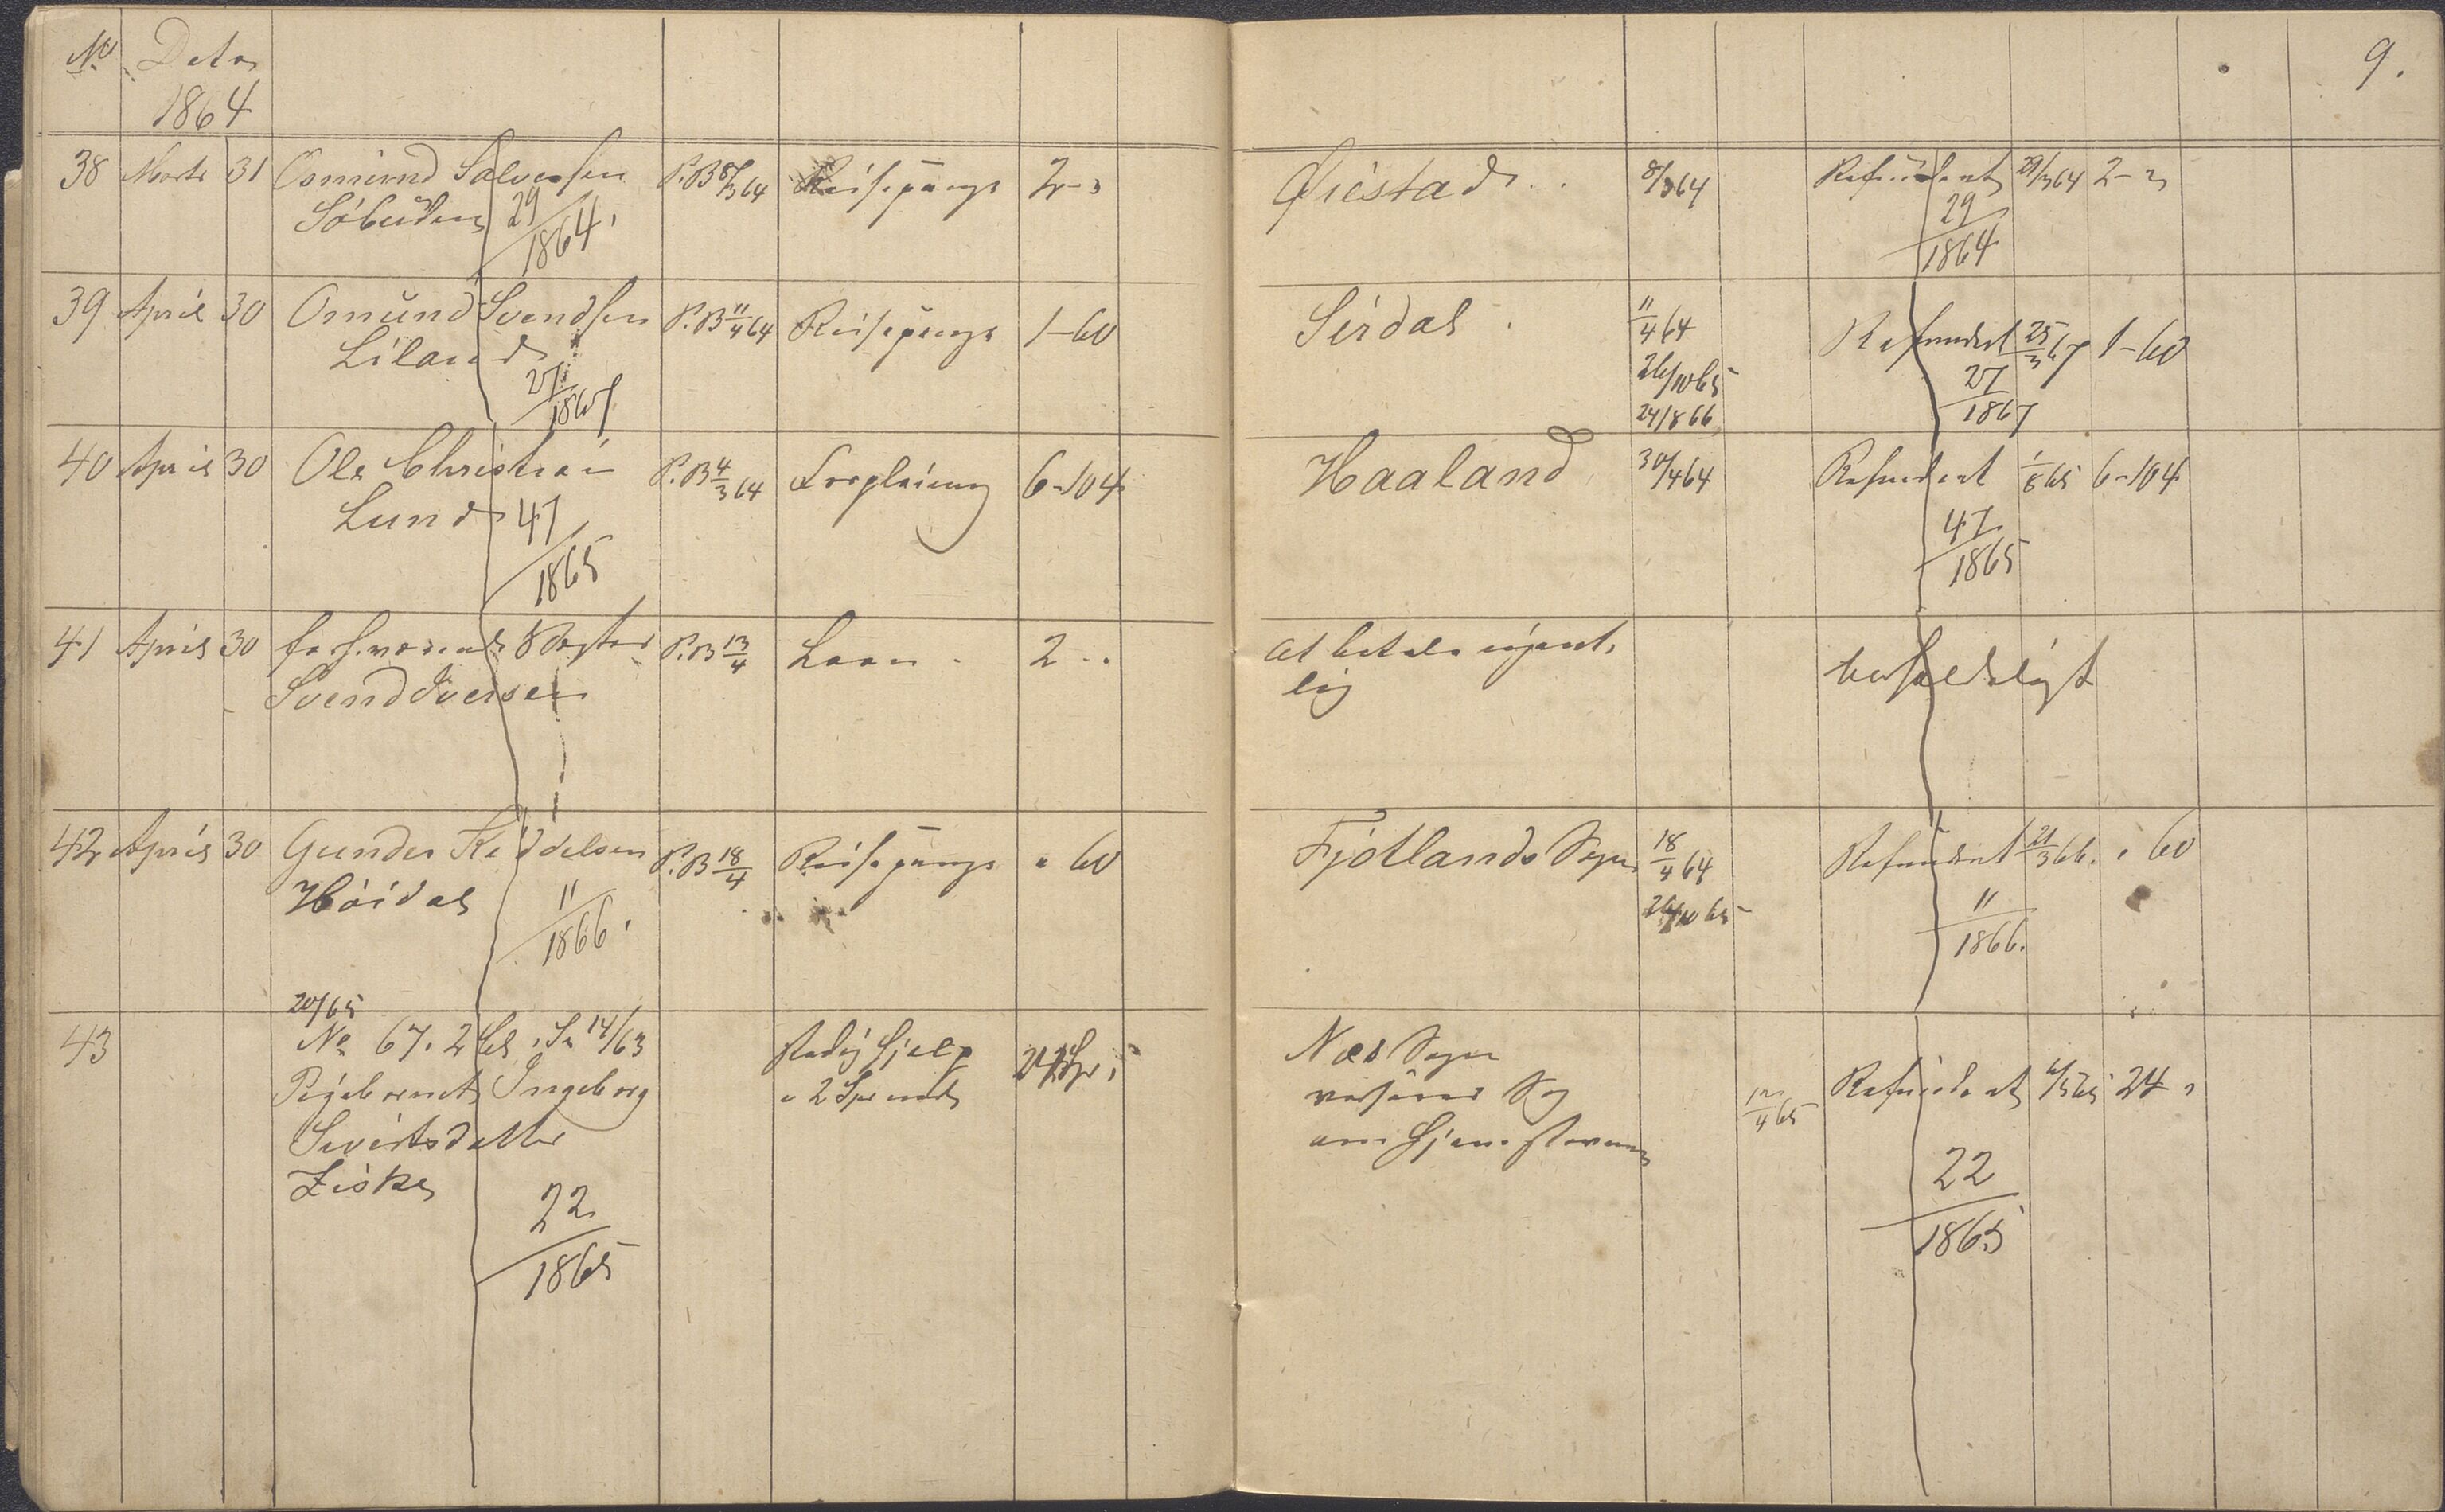 No Dato 9.
1864
38 Marts 31 Osmund Salvesen P.B 8/3 64 Reisepenge 2 - " Øiestad 8/3 64 Refunderet 29/3 64 2 - "
29/1864 29/1864
39 April 30 Omund Svendsen P.B 11/4 64 Reisepenge 1-60 Sirdal 11/4 64 Refunderet 25/3 67 1-60
Liland 26/10 65
27/1867 24/8 66 27/1867
40 April 30 Ole Christian P.B 4/3 64 Forpleining 6-104 Haaland 30/4 64 Refunderet 1/8 65 6-104
Lund 47/1865 47/1865
41 April 30 P.B 13/4 Laan 2 " at betale
Svend Iversen lig
42 April 30 Gunder Keddelsen P.B 18/4 Reisepenge " 60 Fjotlands Sogn 18/4 64 Refunderet 21/3 66. " 60
Höidal 11/1866. 26/10 65 11/1866.
20/65
43 No 67. 14/63 24 Næs Sogn
Pigebarnet Ingeborg a 2 Spd 12/4 65 Refunderet 65 24 "
Sivertsdatter om Hjemstavn
22/1865 22/1865